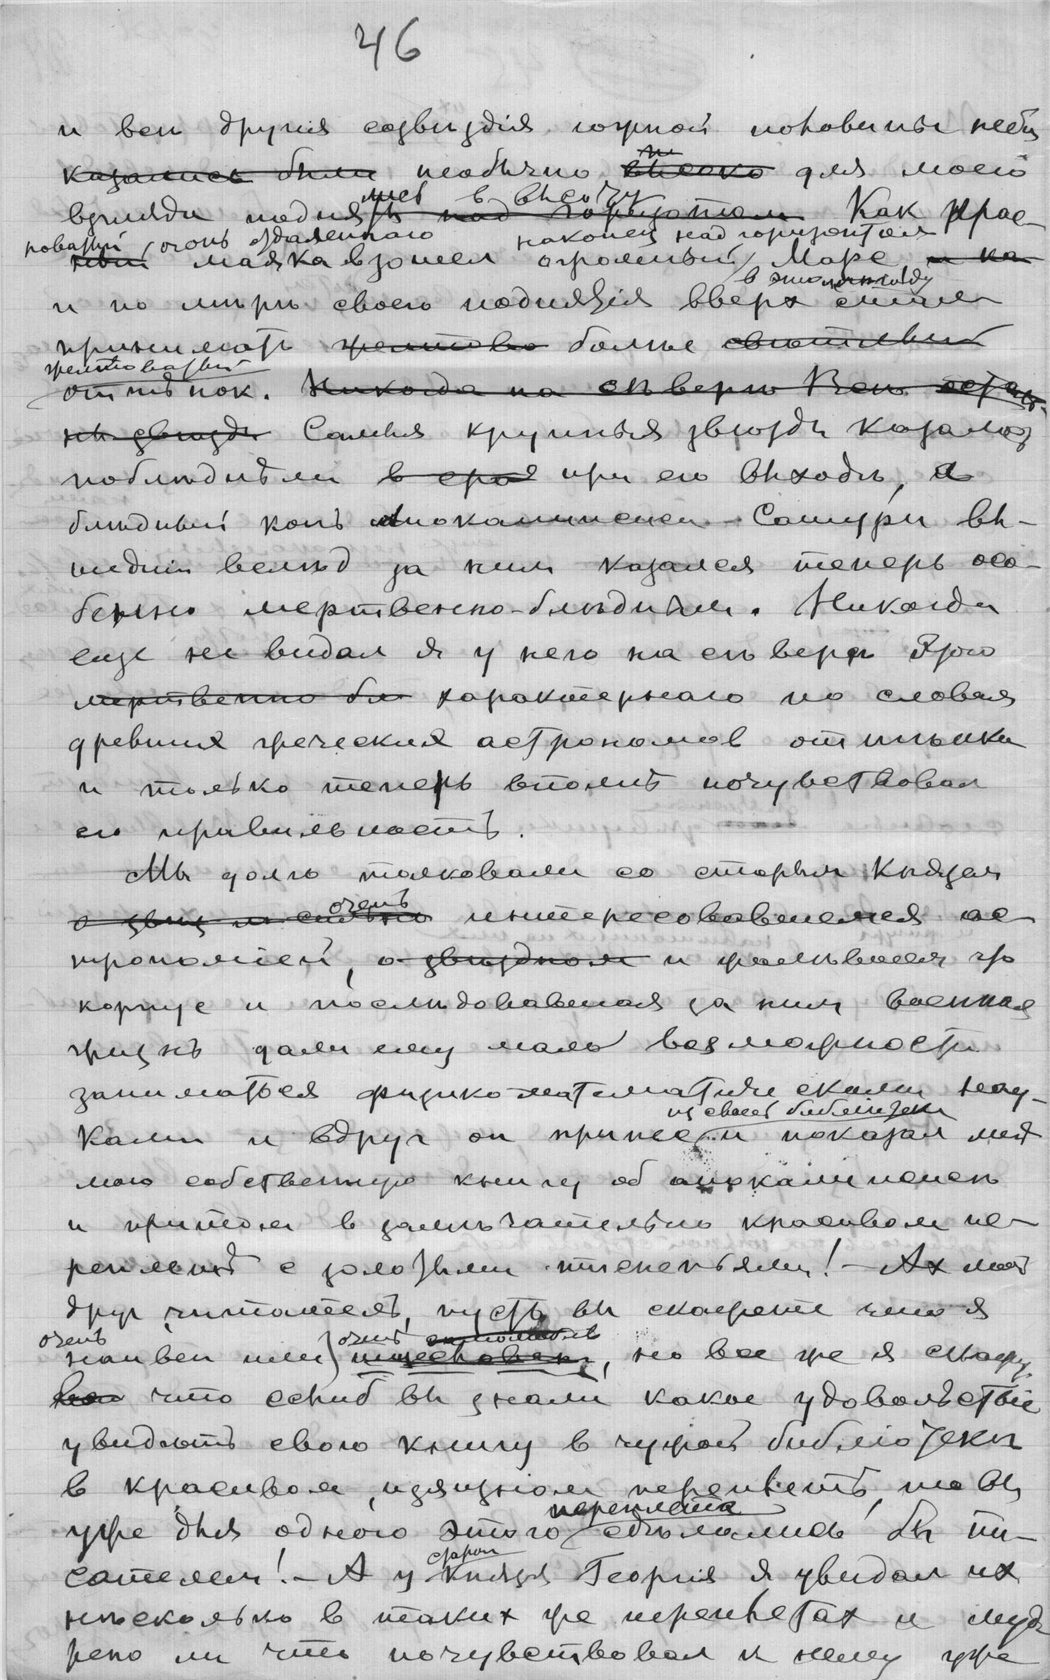 46
и всѣ другія созвѣздія южной половины неба
казались были необычно высоко для моего
взгляда поднятъ над горизонтом в высоту Как крас-
новатый очень отдаленнаго наконец над горизонтом
маяка взошел огромный Марс и ка
и по мѣрѣ своего поднятія вверх в этом
принимать желтова болѣе свѣтлый
желтоватый
оттѣнок. Никогда на сѣверѣ Всѣ
звѣзды Самыя крупныя звѣзды казалось
поблѣднѣли при его выходѣ, а
блѣдный конь Апокалипсиса — Сатурн вы-
шедший вслѣд за ним казался теперь осо-
бенно мертвенно-блѣдным. Никогда
еще не видал я у него на сѣверѣ этого
мертвенно бл характернаго по словам
древних греческих астрономов оттѣнка
и только теперь вполнѣ почувствовал
его правильность.
Мы долго толковали со старым Князем
очень
интересовавшемся ас-
трономіей, о звѣздном и
корпус и послѣдовавшая за ним военная
жизнь дали ему мало возможности
заниматься физико-математическими нау-
из своей библіотеки
ками и вдруг он принес и показал мнѣ
мою собственную книгу об апокалипсисѣ
и притом в замѣчательно красивом пе-
реплетѣ с золотыми тисненьями! — Ах мой
друг читатель, пусть вы скажете что я
очень очень
наивен или тщеславен, но все же я скажу
что если б вы знали какое удовольствіе
увидѣть свою книгу в чужой библіотекѣ
в красивом, изящном переплетѣ, то вы
переплета
уже для одного этого сдѣлались бы пи-
стараго
сателем! — А у Князя Георгія я увидал их
нѣсколько в таких же переплетах и мудр
рено ли что почувствовал к нему уже